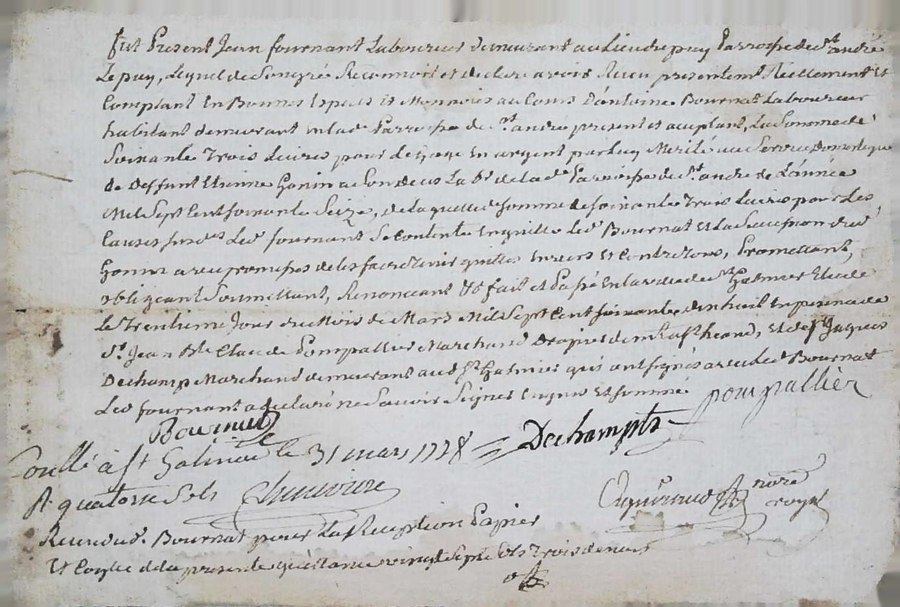 fut Present Jean fournant Laboureur demeurant au Lieu de puy Parroisse de St andré
Le puy, Lequel de Son gré a Reconnu et declare avoir Receu presentemt Reellement Et
Comptant En Bonnes Especes et Monnoies au Cours D'antoine Bournat Laboureur
habitant demeurant en lad Parroisse de St andré present et acceptant, La Somme de
Soixante Trois Livres pour Le gage En argent par Luy Merité au Service Domestique
de Deffunt Etienne Gonin de Lad Parroisse de St andré de L'année
Mil Sept Cent Soixante Seize, de Laquelle de Somme de Soixante Trois Livres pour Les
Causes Susdes Led fournant Se Contente En quitte Led Bournat Et La Succession dud
Gonin avec promesses de Les faire Tenir quittes Envers Et Contre Tous, Promettant,
obligeant Soumettant, Renonceant &c fait et Passé En la ville de St Galmier Etude
Le Trentieme Jour du Mois de Mars Mil Sept Cent Soixante dixhuit En presence de
Sr Jean Bte Claude Pompallier Marchand Drapier de Et de Sr Jacques
Dechamp Marchand demeurant aud St Galmier qui ont Signés avec Led Bournat
Led fournant a declaré ne Savoir Signer Enquis Et Sommé
Bournat
Dechampts pompallier
Conllé à St Galmier le 31 mars 1778
R quatorse Sols
nore royal
Receu dud. Bournat pour La Reception Papier
Et Conlle de la presente quittance vingt Sept Sols Trois deniers